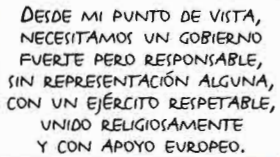 DESDE MI PUNTO DE VISTA,
NECESITAMOS UN GOBIERNO
FUERTE PERO RESPONSABLE,
SIN REPRESENTACIÓN ALGUNA,
CON UN EJÉRCITO RESPETABLE,
UNIDO RELIGIOSAMENTE
Y CON APOYO EUROPEO.